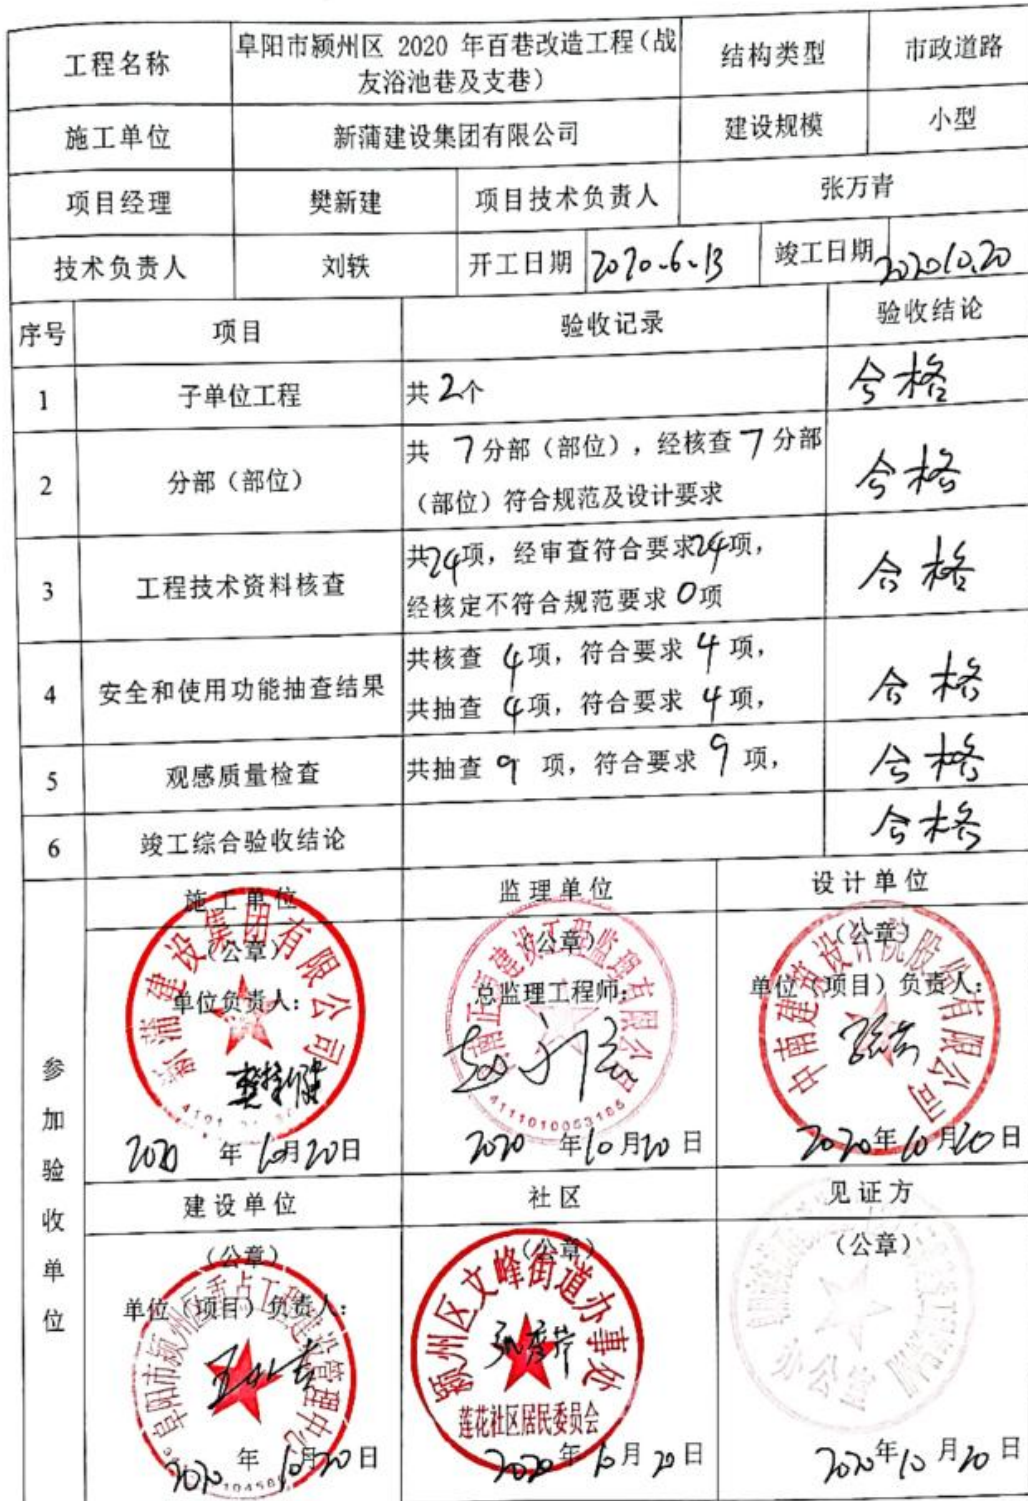 工程名称
阜阳市颍州区 2020 年百巷改造工程（战
友浴池巷及支巷）
结构类型
市政道路
施工单位
新蒲建设集团有限公司
建设规模
小型
项目经理
樊新建
项目技术负责人
张万青
技术负责人
刘轶
开工日期
2020.6.13
竣工日期
2020.10.20
序号
项目
验收记录
验收结论
1
子单位工程
共 2个
合格
2
分部（部位）
共 7分部（部位），经核查7分部
（部位）符合规范及设计要求
合格
3
工程技术资料核查
共24项，经审查符合要求24项，
经核定不符合规范要求 0项
合格
4
安全和使用功能抽查结果
共核查 4项，符合要求 4 项，
共抽查 4项，符合要求 4项，
合格
5
观感质量检查
共抽查 9 项，符合要求 9 项，
合格
6
竣工综合验收结论
合格
参加验收单位
施工单位
（公章）
单位负责人：
新蒲建设集团有限公司
2020 年 10月20日
监理单位
（公章）
总监理工程师：
建设工程监理有限公
4111010053185
2020 年10月20日
设计单位
（公章）
单位（项目）负责人：
中南建筑设计院股份有限公司
2020年10月20日
建设单位
（公章）
单位（项目）负责人：
阜阳市颍州区重点工程建设管理中心
2020 年 10月20日
社区
（公章）
颍州区文峰街道办事处
莲花社区居民委员会
2020年10月20日
见证方
（公章）
办公室
2020年10月20日